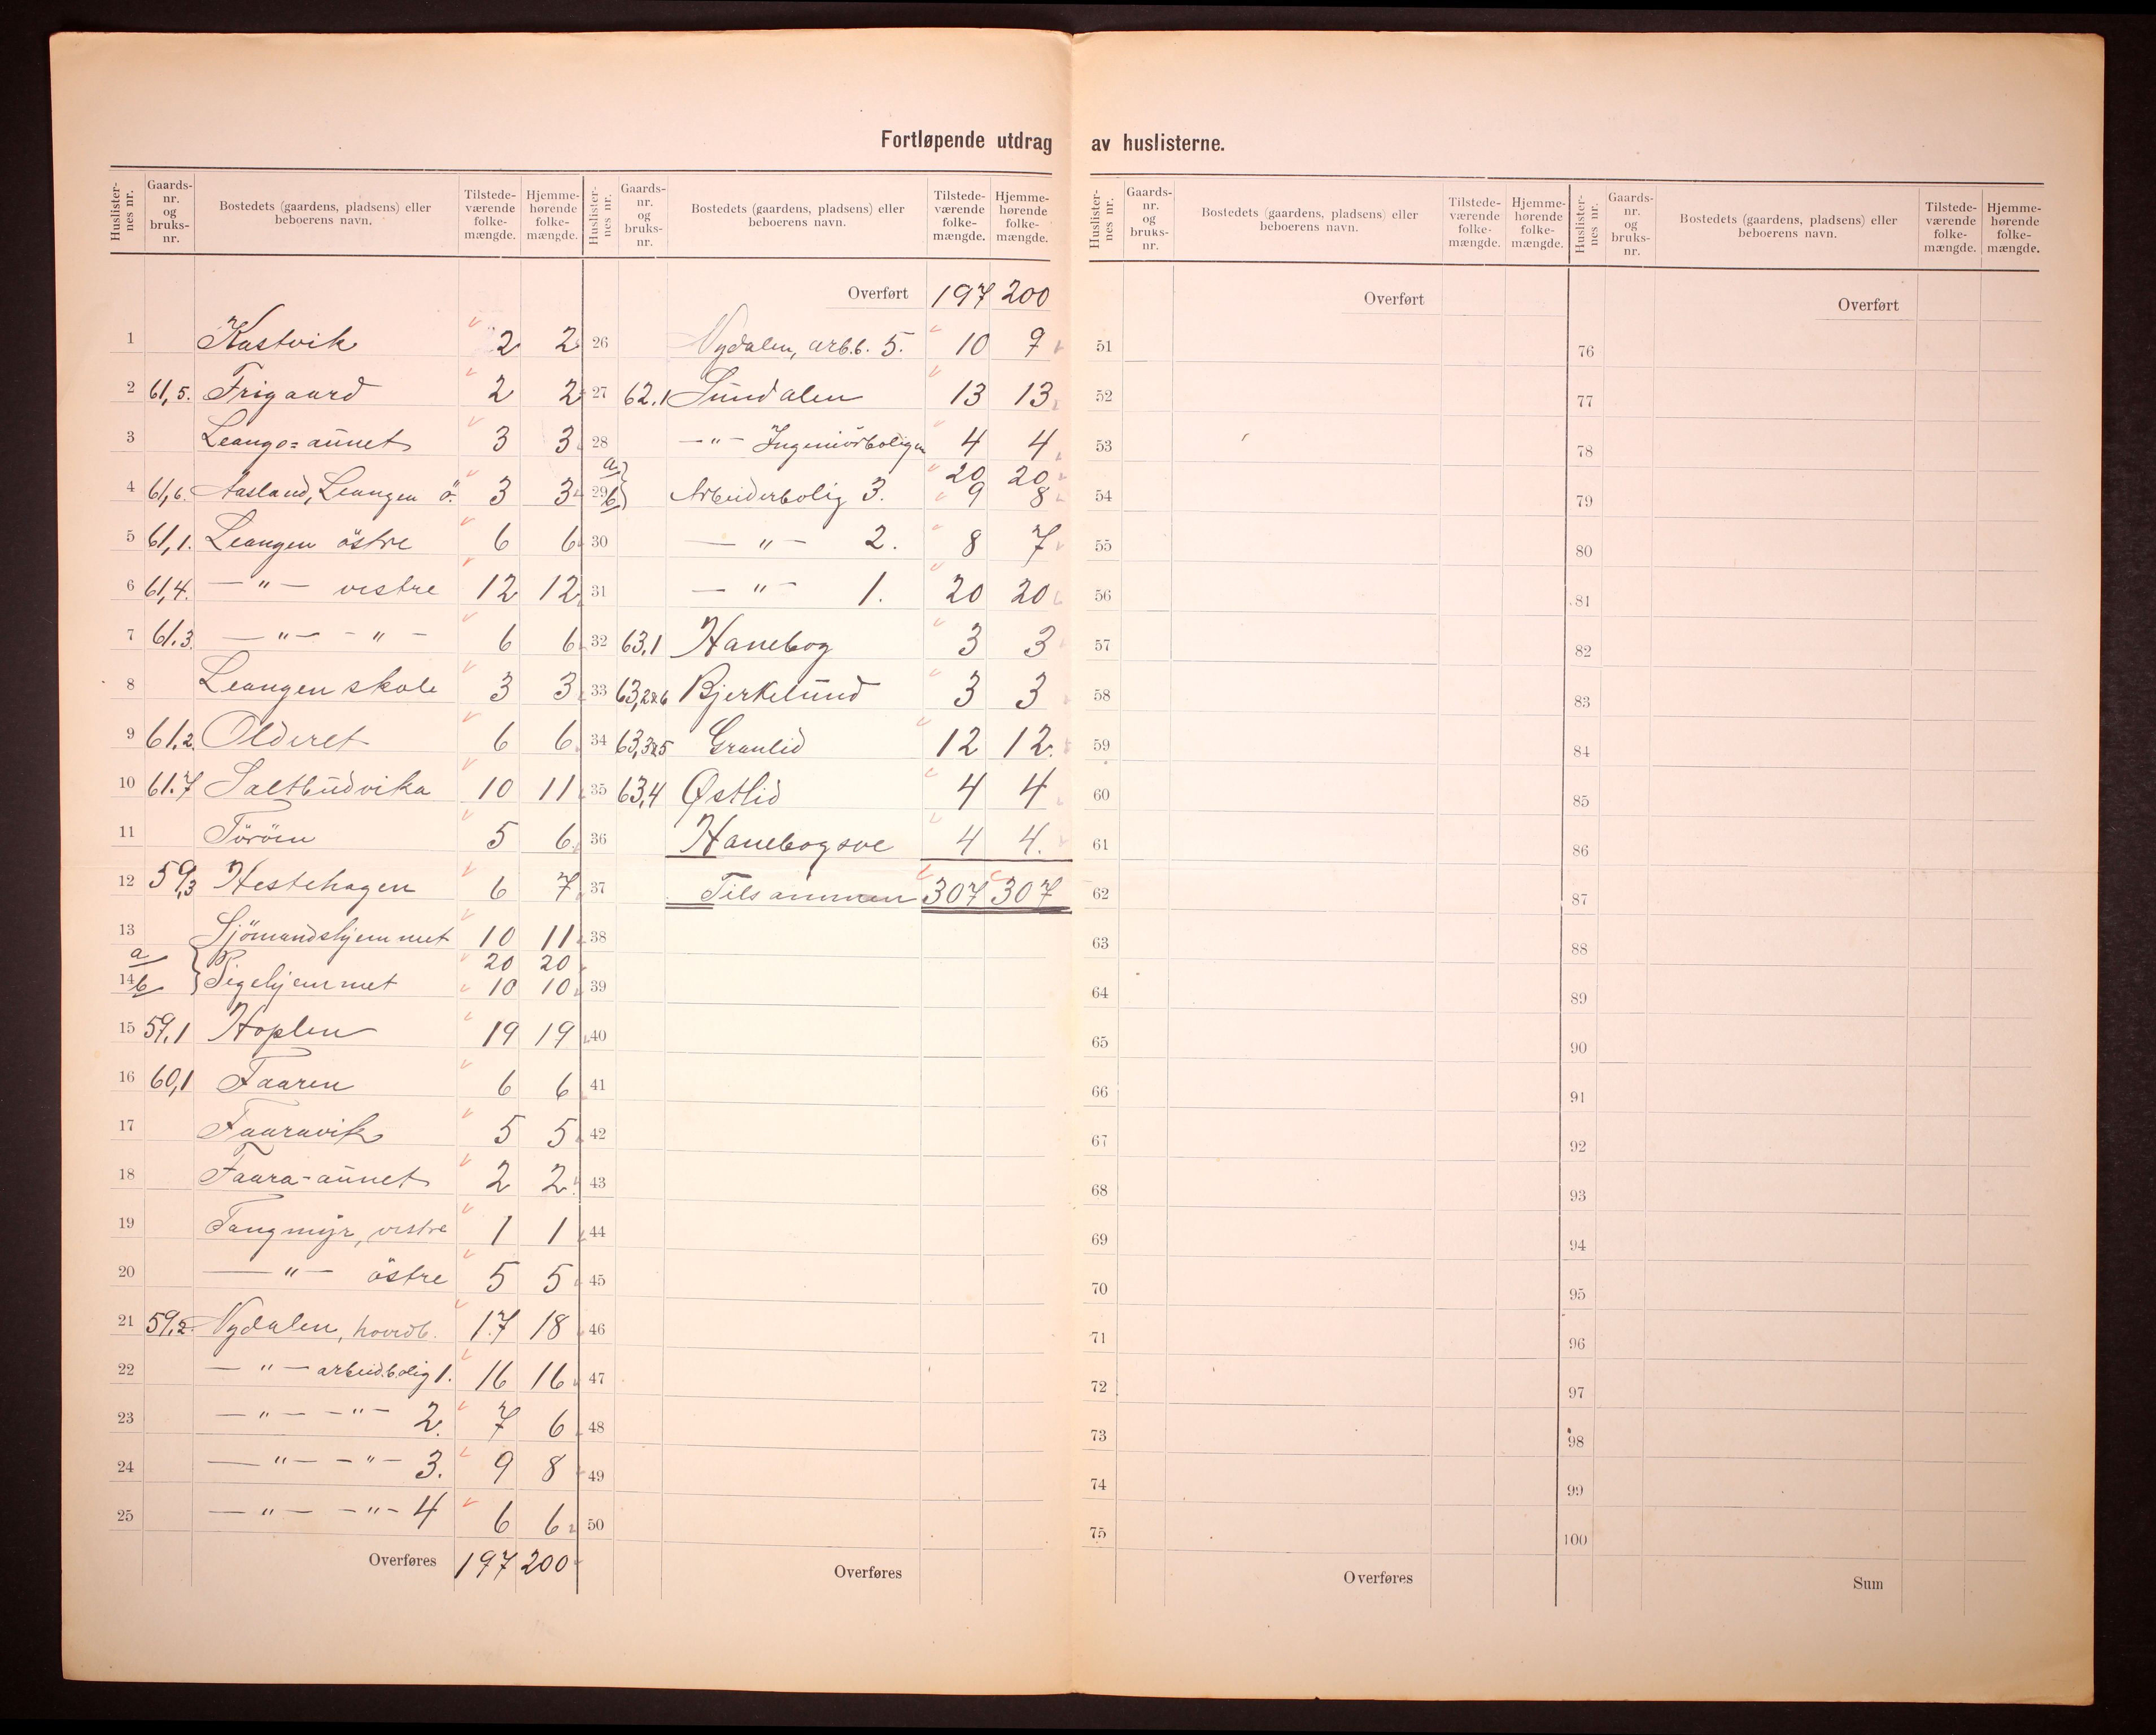 Fortløpende utdrag av huslisterne.
Huslister-nes nr. Gaards-nr. og bruks-nr. Bostedets (gaardens, pladsens) eller beboerens navn. Tilstede-værende folke-mængde. Hjemme-hørende folke-mængde.
1 Kastvik 2 2
2 61,5. Frigaard 2 2
3 Leangs=aunet 3 3
4 61,6. Aasland, Leangen ö. 3 3
5 61,1. Leangen östre 6 6
6 61,4. — " — vestre 12 12
7 61.3. — " — - " - 6 6
8 Leangen skole 3 3
9 61,2. Olderet 6 6
10 61.7 Saltbudvika 10 11
11 Töröen 5 6
12 59,3 Hestehagen 6 7
13 Sjömandshjemmet 10 11
a 20 20
14 b Pigehjemmet 10 10
15 59,1 Hoplen 19 19
16 60,1 Faaren 6 6
17 Faaravik 5 5
18 Faara-aunet 2 2
19 Tangmyr, vestre 1 1
20 — " — östre 5 5
21 59,2. Nydalen, hovedb. 17 18
22 — " — arbeid.bolig 1. 16 16
23 — " — - " - 2. 7 6
24 — " — - " - 3. 9 8
25 — " — - " - 4 6 6
Overføres 197 200
Huslister-nes nr. Gaards-nr. og bruks-nr. Bostedets (gaardens, pladsens) eller beboerens navn. Tilstede-værende folke-mængde. Hjemme-hørende folke-mængde.
Overført 197 200
26 Nydalen, arb.b. 5. 10 9
27 62.1 Sundalen 13 13
28 — " — Ingeniörboligen 4 4
a 20 20
29 b Arbeiderbolig 3. 9 8
30 — " — 2. 8 7
31 — " — 1. 20 20
32 63,1 Hanebog 3 3
33 63,2&6 Bjerkelund 3 3
34 63,3&5 Granlid 12 12.
35 63,4 Østlid 4 4
36 Hanebogsve 4 4.
37 Tilsammen 307 307
38
39
40
41
42
43
44
45
46
47
48
49
50
Overføres
Huslister-nes nr. Gaards-nr. og bruks-nr. Bostedets (gaardens, pladsens) eller beboerens navn. Tilstede-værende folke-mængde. Hjemme-hørende folke-mængde.
Overført
51
52
53
54
55
56
57
58
59
60
61
62
63
64
65
66
67
68
69
70
71
72
73
74
75
Overføres
Huslister-nes nr. Gaards-nr. og bruks-nr. Bostedets (gaardens, pladsens) eller beboerens navn. Tilstede-værende folke-mængde. Hjemme-hørende folke-mængde.
Overført
76
77
78
79
80
81
82
83
84
85
86
87
88
89
90
91
92
93
94
95
96
97
98
99
100
Sum